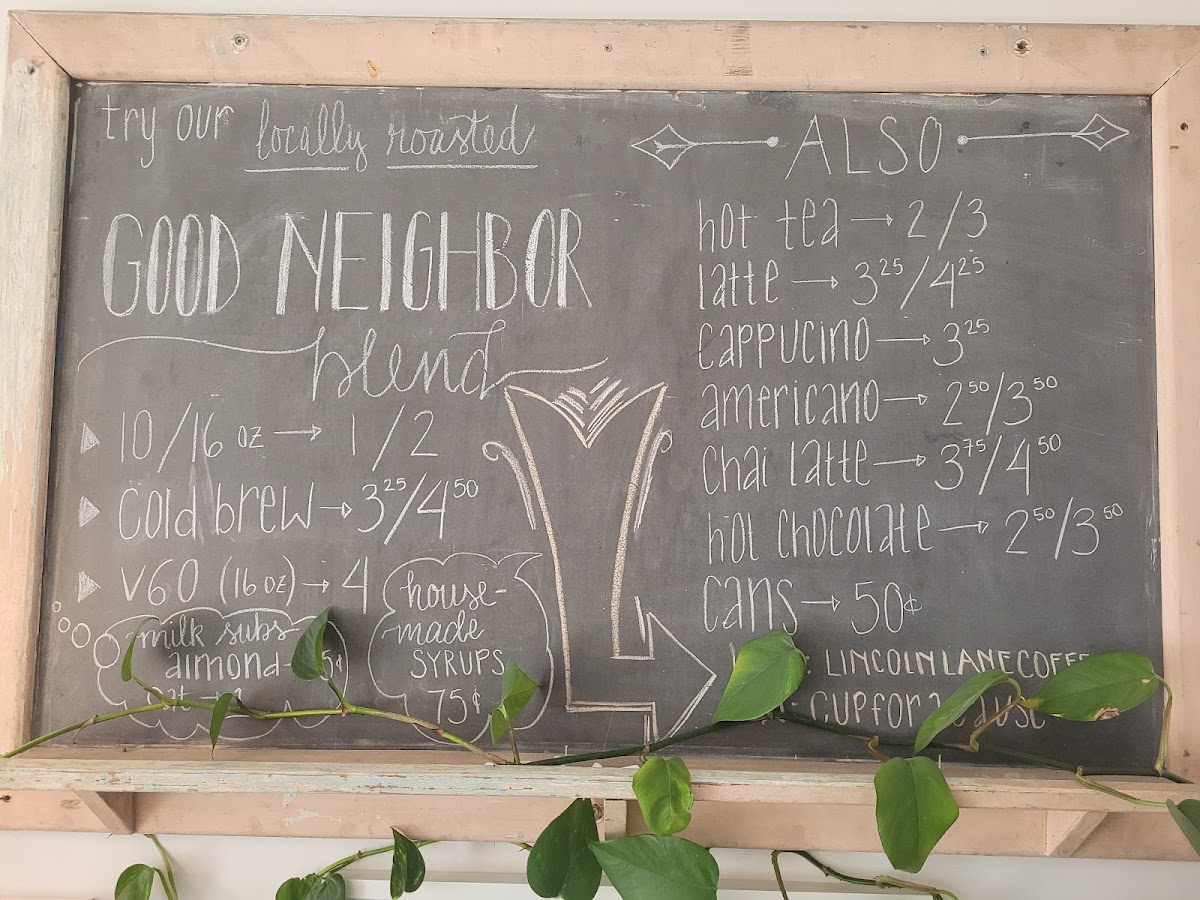 try our locally roasted
GOOD NEIGHBOR
blend
10/16 oz → 1/2
cold brew → 3²⁵/4⁵⁰
V60 (16 oz) → 4
milk subs
almond
house-
made
SYRUPS
75¢
ALSO
hot tea → 2/3
latte → 3²⁵/4²⁵
cappucino → 3²⁵
americano → 2⁵⁰/3⁵⁰
chai latte → 3⁷⁵/4⁵⁰
hot chocolate → 2⁵⁰/3⁵⁰
cans → 50¢
LINCOLNLANECOFFE
CUPFOR